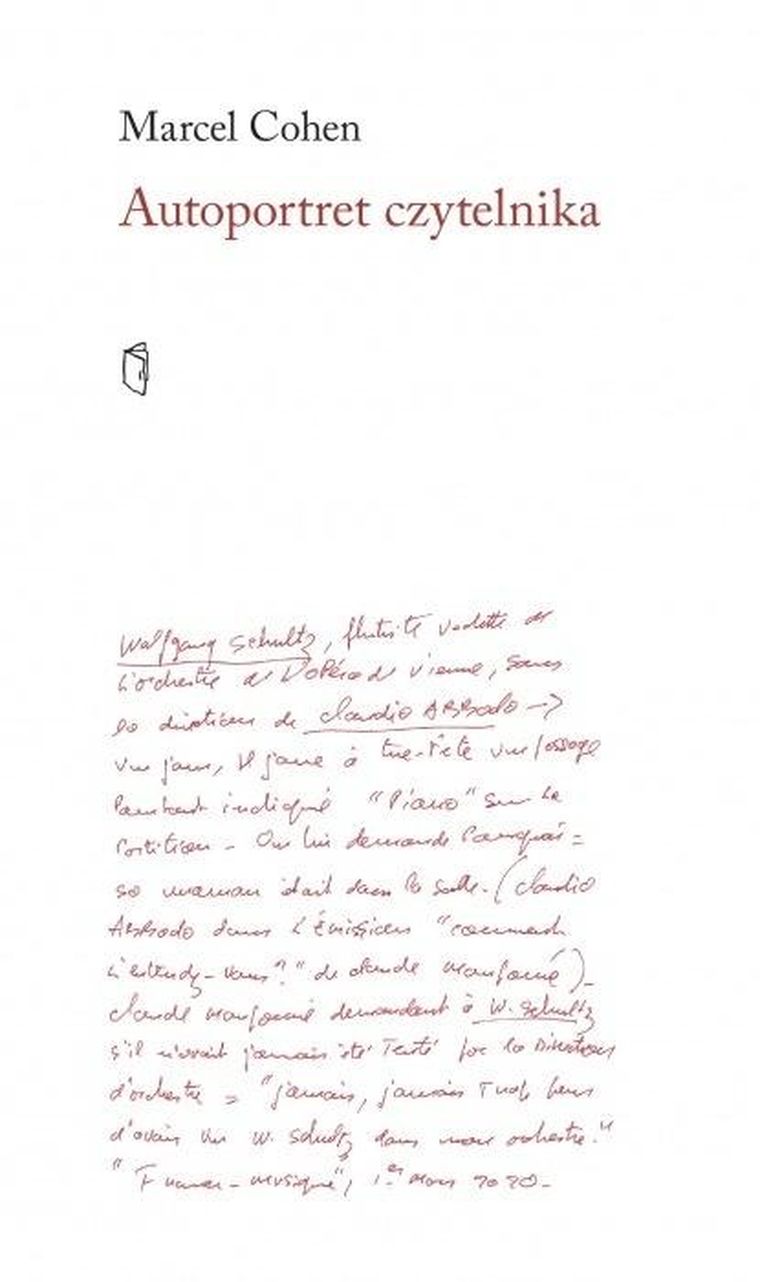 Marcel Cohen
Autoportret czytelnika
Wolfgang Schultz, flutiste vedette de
L'orchestre de L'Opéra de Vienne, sous
la direction de Claudio ABBado ->
Un jour, il joue à tue-tête un passage
Pourtant indiqué "Piano" sur la
Partition - On lui demande Pourquoi =
sa maman était dans la salle. (Claudio
ABBado dans L'Émission "comment
L'entendez-vous?" de claude maupomé)-
claude maupomé demandant à W. Schultz
s'il n'avait jamais été Tenté par la Direction
d'orchestre = "jamais, jamais Trop
d'avoir un W. Schultz dans mon orchestre."
"France-musique", 1er Mars 2020-